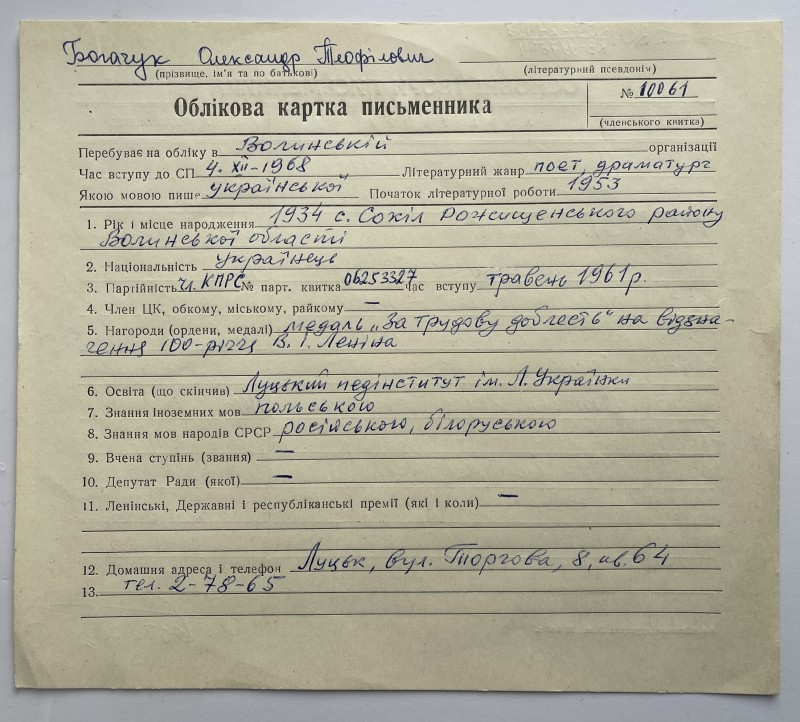 Богачук Олександр Теофілович
(прізвище, ім'я та по батькові) (літературний псевдонім)
Облікова картка письменника № 10061
(членського квитка)
Перебуває на обліку в Волинській організації
Час вступу до СП 4. XII-1968 Літературний жанр поет, драматург
Якою мовою пише української Початок літературної роботи 1953
1. Рік і місце народження 1934 с. Сокіл Рожищенського району
Волинської області
2. Національність українець
3. Партійність чл. КПРС № парт. квитка 06253327 Час вступу травень 1961 р.
4. Член ЦК, обкому, міському, райкому —
5. Нагороди (ордени, медалі) медаль „За трудову доблесть“ на відзна-
чення 100-річчя В. І. Леніна
6. Освіта (що скінчив) Луцький педінститут ім. Л. Українки
7. Знання іноземних мов польською
8. Знання мов народів СРСР російською, білоруською
9. Вчена ступінь (звання) —
10. Депутат Ради (якої) —
11. Ленінські, Державні і республіканські премії (які і коли) —
12. Домашня адреса і телефон Луцьк, вул. Торгова, 8, кв. 64
13. тел. 2-78-65